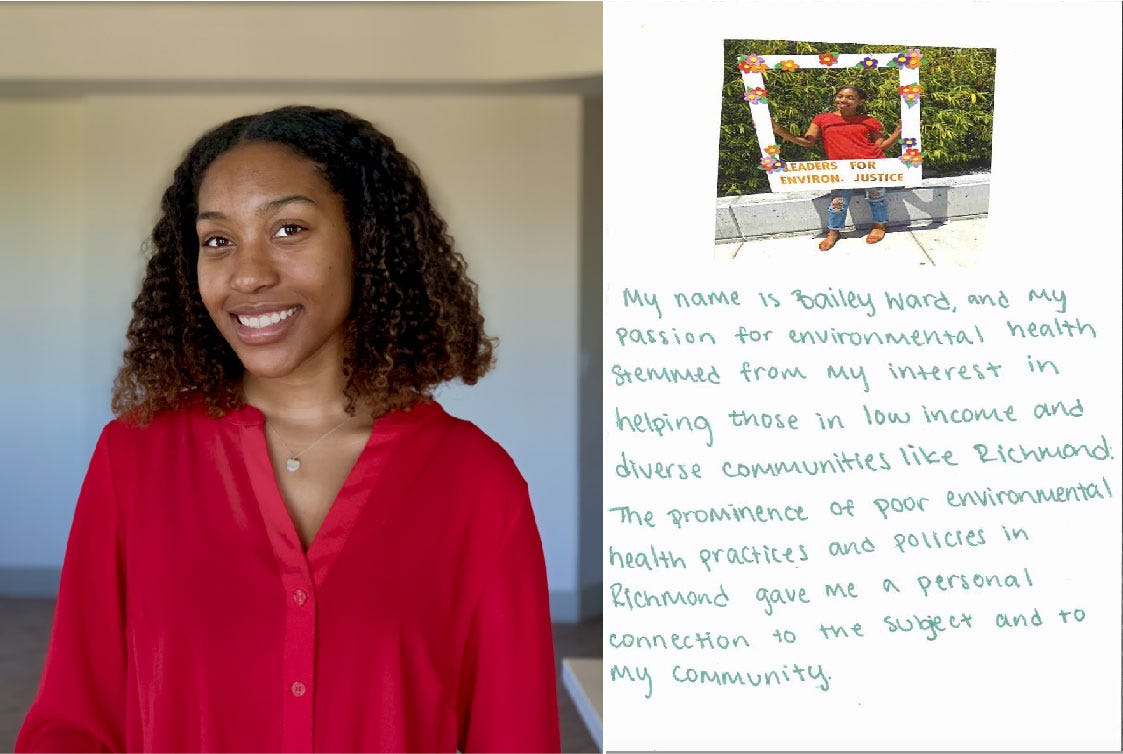 LEADERS FOR
ENVIRON. JUSTICE
My name is Bailey Ward, and my
passion for environmental health
stemmed from my interest in
helping those in low income and
diverse communities like Richmond.
The prominence of poor environmental
health practices and policies in
Richmond gave me a personal
connection to the subject and to
my community.